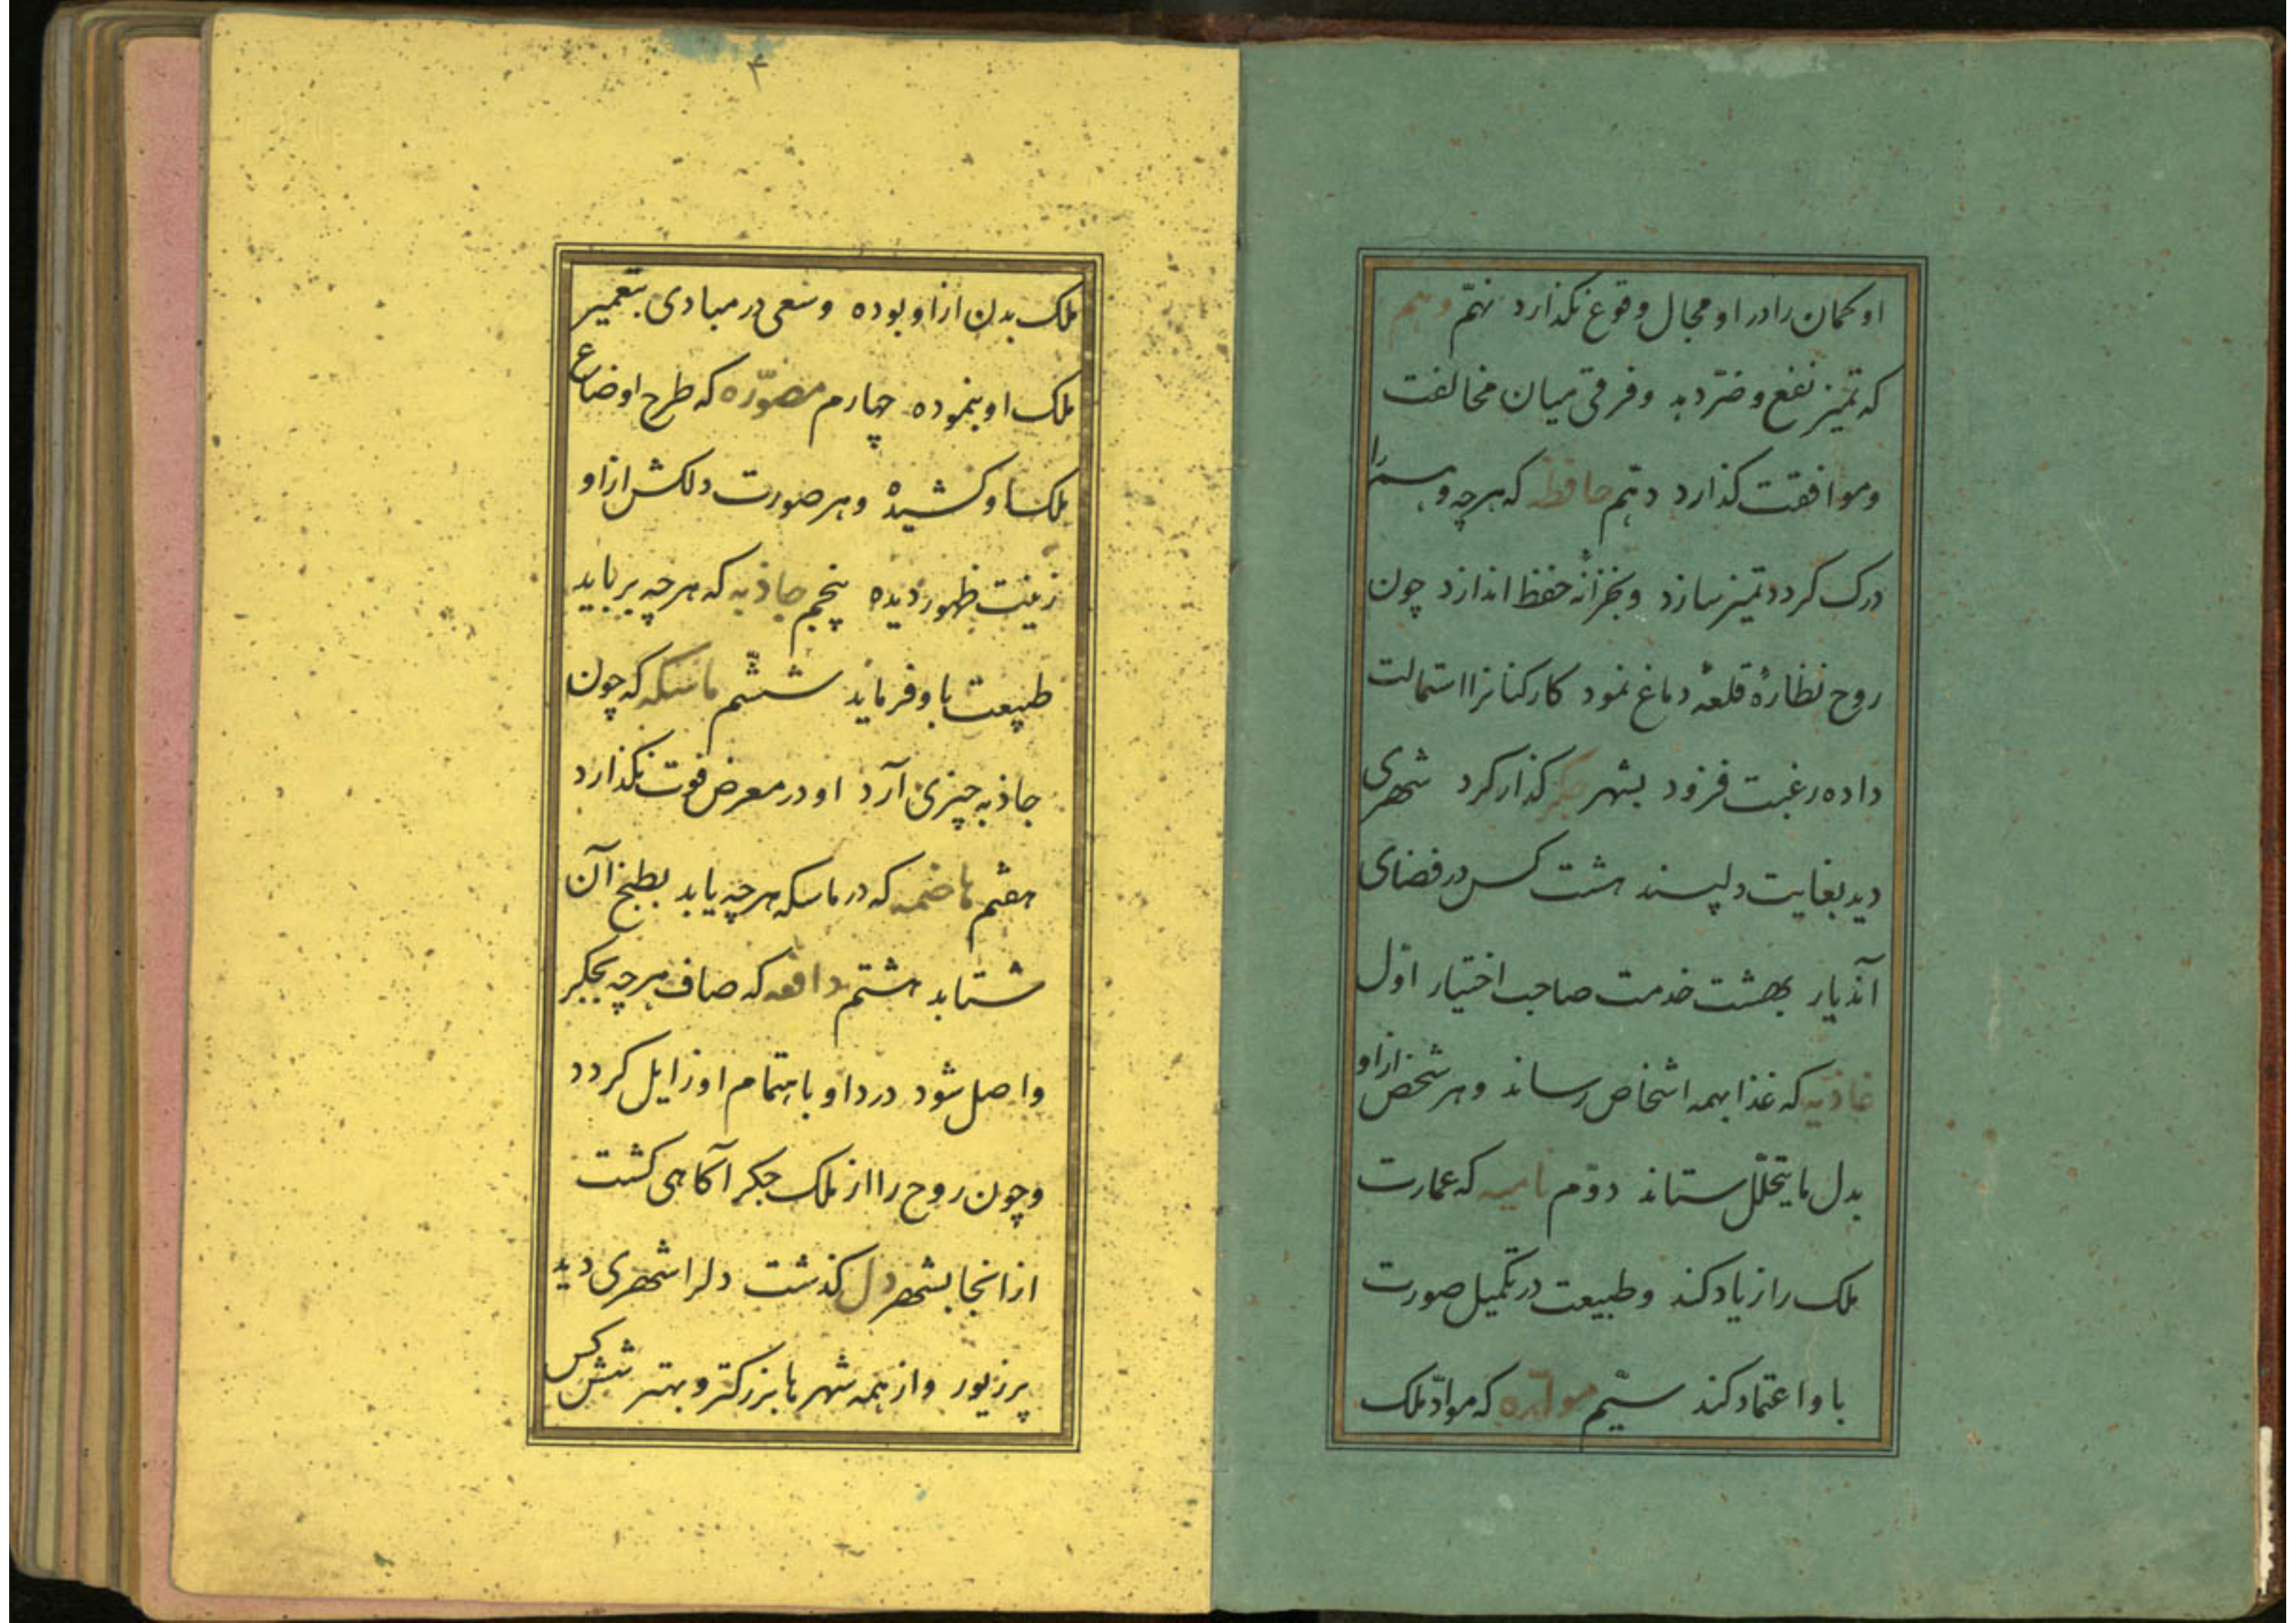 او کمان را در او مجال وقوع نکذارد نهم وهم
که تمیز نفع و ضرر دهد و فرقی میان مخالفت
و موافقت کذارد دهم حافظه که هرچه وهم را
درک کردد تمیز سازد و بخزانهٔ حفظ اندازد چون
روح نظارهٔ قلعهٔ دماغ نمود کارکنانرا استمالت
داده رغبت فزود بشهر جکر کذار کرد شهری
دید بغایت دلپسند هشت کس در فضای
آندیار بهشت خدمت صاحب اختیار اوّل
غاذیه که غذا بهمه اشخاص رساند و هر شخص ازاو
بدل ما یتحلّل ستاند دوّم نامیه که عمارت
ملک را زیاد کند و طبیعت در تکمیل صورت
باو اعتماد کند سیّم مولّده که موادّ ملک
۴
ملک بدن ازاو بوده و سعی در مبادی بتعمیر
ملک او بنموده چهارم مصوّره که طرح اوضاع
ملک او کشیده و هر صورت دلکش ازاو
زینت ظهور دیده پنجم جاذبه که هرچه برباید
طبیعت باو فرماید ششم ماسکه که چون
جاذبه چیزی آرد او در معرض فوت نکذارد
هفتم هاضمه که در ماسکه هرچه یابد بطبخ آن
شتابد هشتم دافعه که صاف هرچه بجکر
واصل شود درد او باهتمام او زایل کردد
و چون روح را از ملک جکر آکاهی کشت
ازانجا بشهر دل کذشت دلرا شهری دید
پرزیور و از همه شهرها بزرکتر و بهتر شش کس